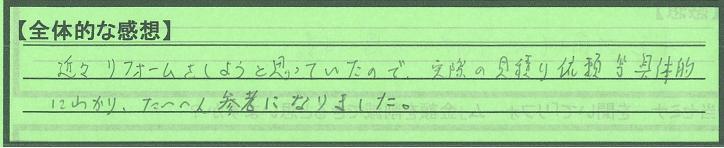 【全体的な感想】
近々リフォームをしようと思っていたので、実際の見積り依頼等具体的
にわかり、たいへん参考になりました。